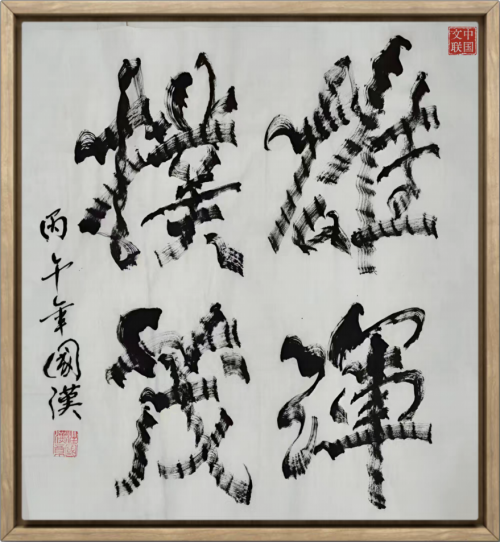 中国
文联
雄渾
樸茂
丙午年國漢